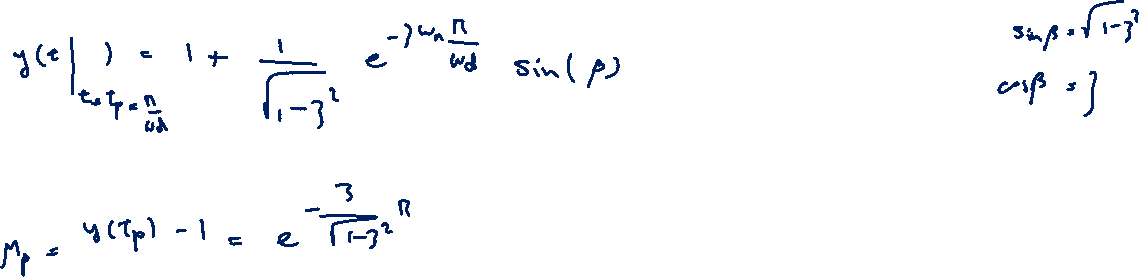 y(t|_{t=τ_p=π/ωd}) = 1 + 1/√(1-ζ²) e^{-ζωn π/ωd} sin(β)
sinβ = √(1-ζ²)
cosβ = ζ
M_p = y(τ_p) - 1 = e^{-ζ/√(1-ζ²) π}